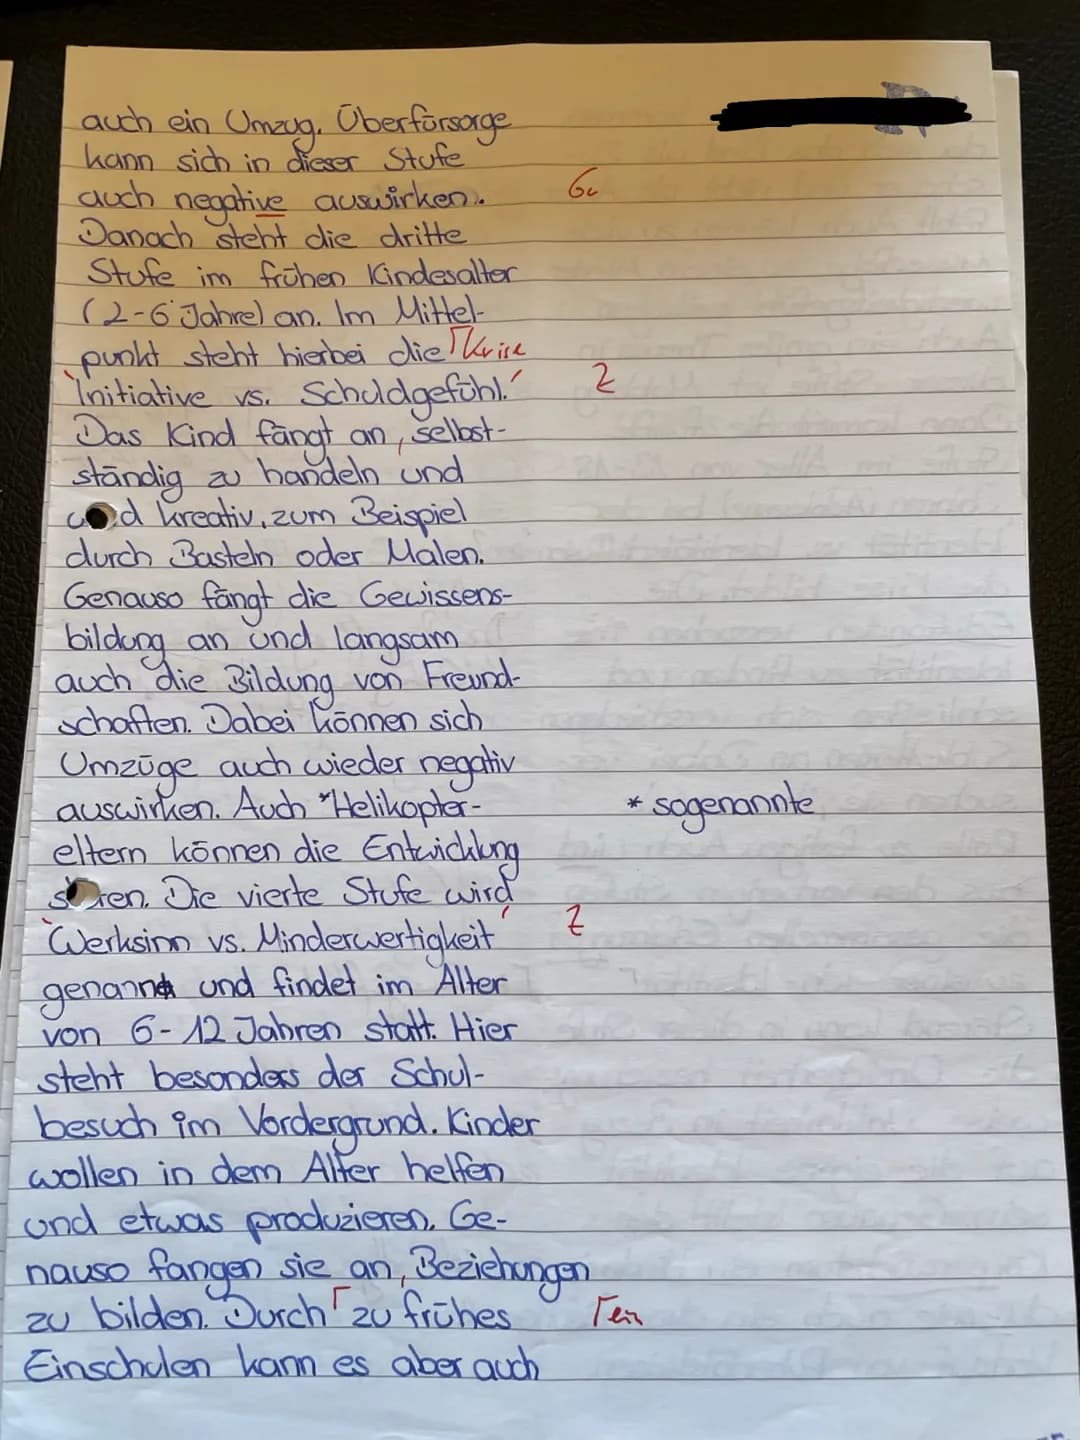 auch ein Umzug. Überfürsorge
kann sich in dieser Stufe
auch negative auswirken. Gr
Danach steht die dritte
Stufe im frühen Kindesalter
(2-6 Jahre) an. Im Mittel-
punkt steht hierbei die ⌈Krise
'Initiative vs. Schuldgefühl.' Z
Das Kind fängt an, selbst-
ständig zu handeln und
und kreativ, zum Beispiel
durch Basteln oder Malen.
Genauso fängt die Gewissens-
bildung an und langsam
auch die Bildung von Freund-
schaften. Dabei können sich
Umzüge auch wieder negativ
auswirken. Auch *Helikopter- * sogenannte
eltern können die Entwicklung
stören. Die vierte Stufe wird
'Werksinn vs. Minderwertigkeit' Z
genannt und findet im Alter
von 6-12 Jahren statt. Hier
steht besonders der Schul-
besuch im Vordergrund. Kinder
wollen in dem Alter helfen
und etwas produzieren. Ge-
nauso fangen sie an, Beziehungen
zu bilden. Durch ⌈ zu frühes ⌈ein
Einschulen kann es aber auch